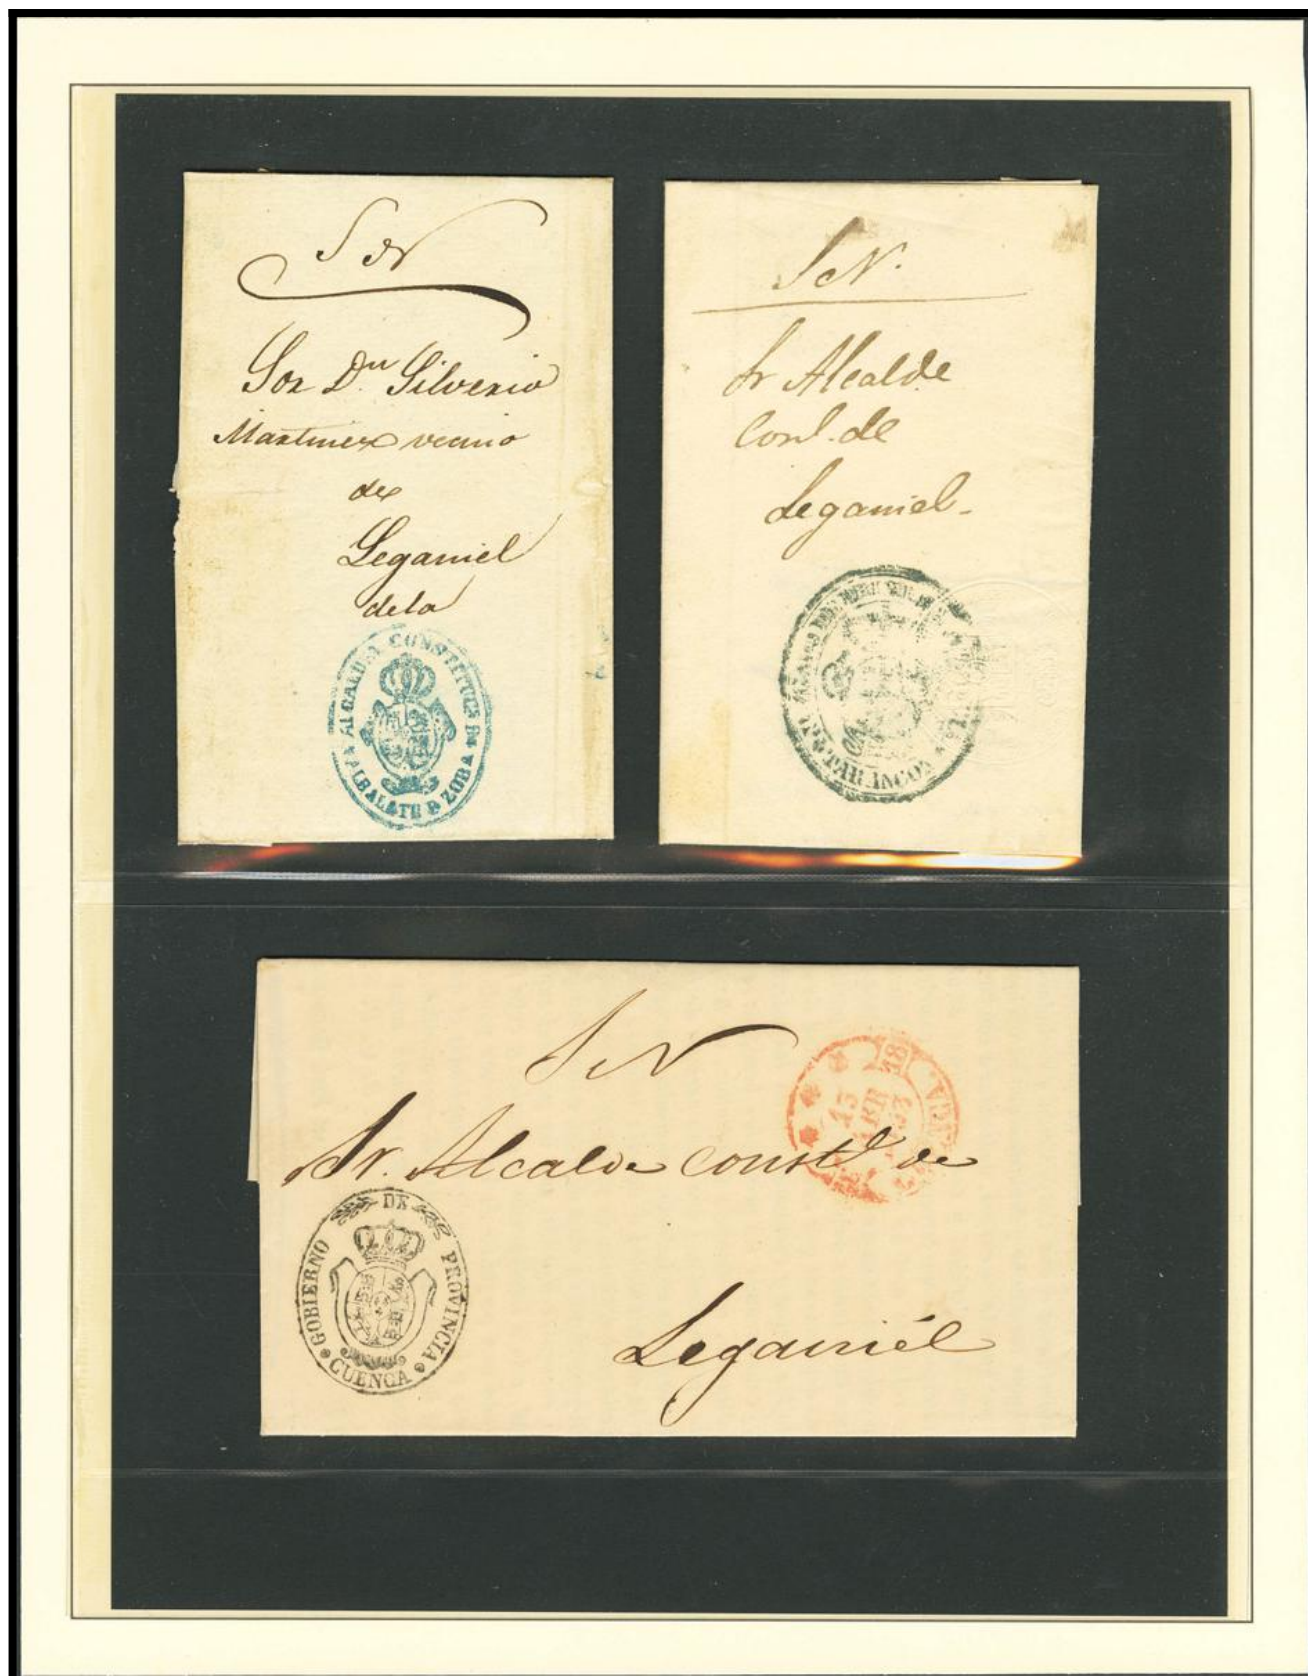 S N
Sor Dn Silverio
Martinez vecino
de
Leganiel
dela
ALCALDIA CONSTITUCL D
ALBALATE D ZOR
S N.
Sr Alcalde
Conl. de
Leganiel
TARANCON
S N
Sr. Alcalde constl de
Leganiél
GOBIERNO DE PROVINCIA
CUENCA
13